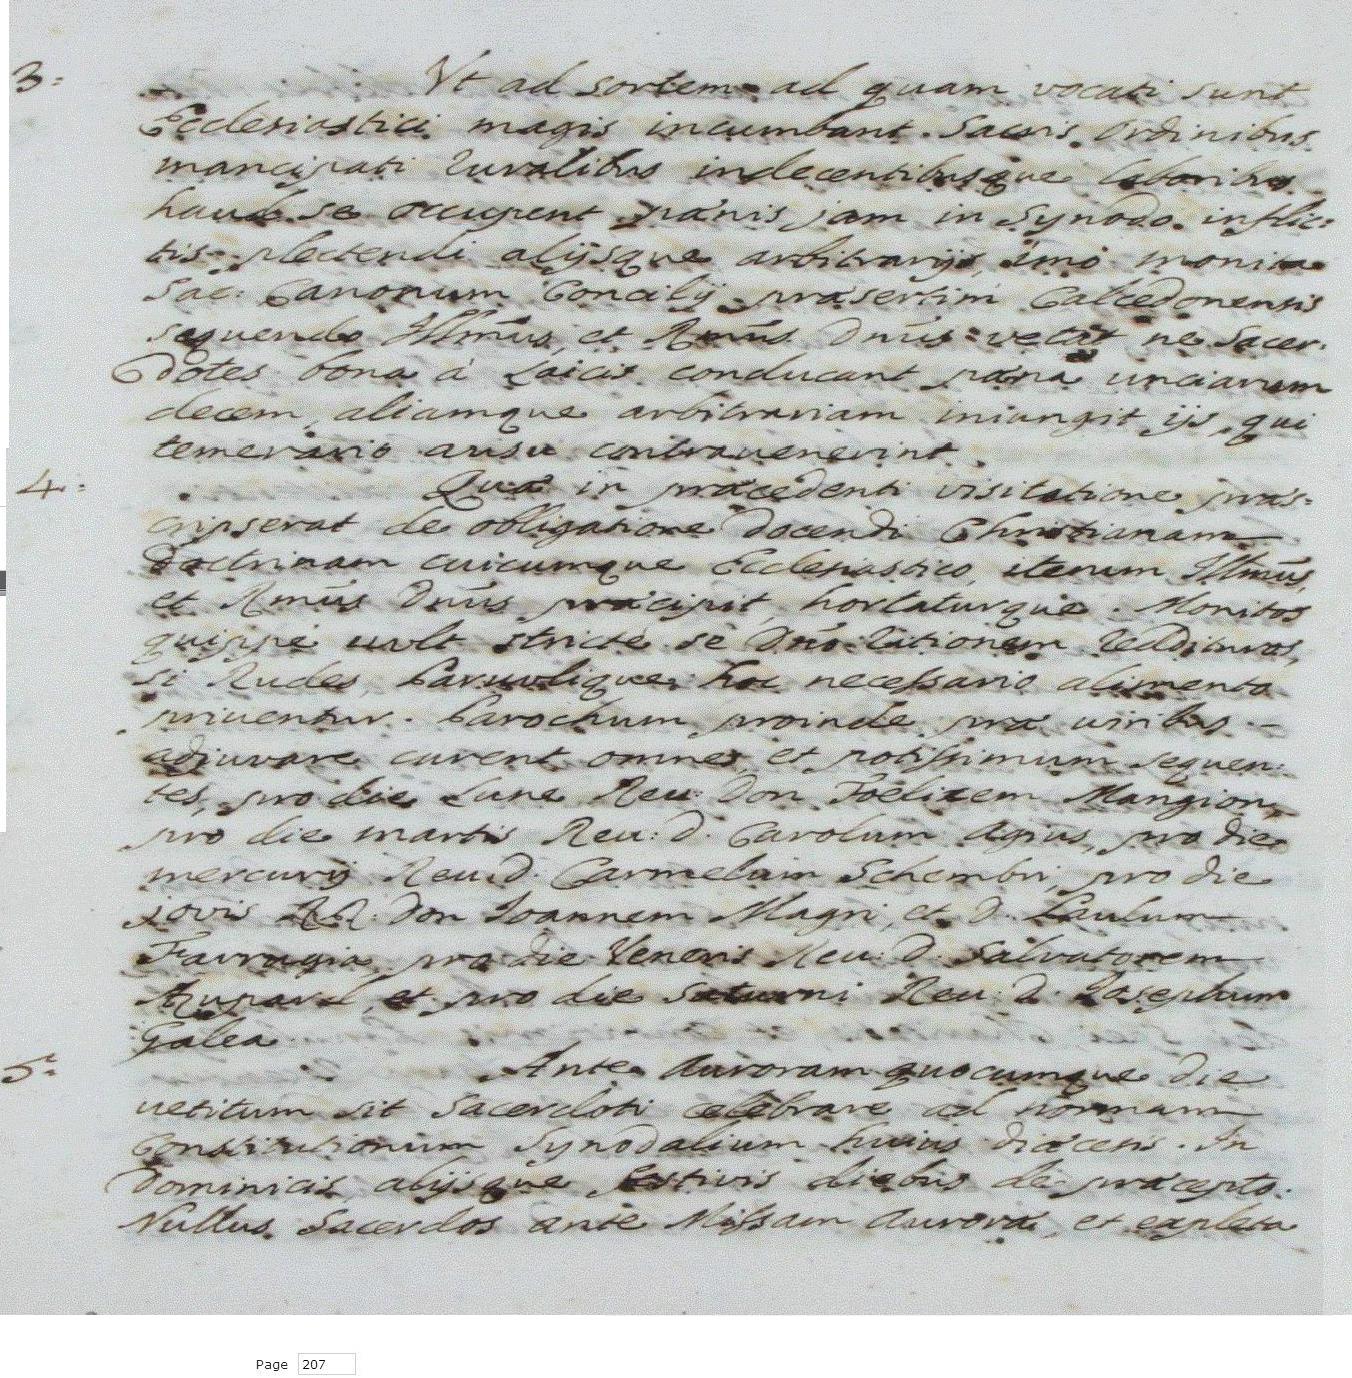 3:
Ut ad sortem ad quam vocati sunt
Ecclesiastici magis incumbant. Sacris Ordinibus
mancipati ruralibus indecentibusque laboribus
haud se occupent pænis jam in Synodo inflic-
tis plectendi alijsque arbitrarijs, imo monita
Sac: Canonum Concilij præsertim Calcedonensis
sequendo Illmus, et Rmus Dnus vetat ne Sacer-
dotes bona à Laicis conducant pæna unciarum
decem, aliamque arbitrariam iniungit ijs, qui
temerario ausu contrauenerint.
4:
Quæ in præcedenti visitatione præs-
cripserat de obligatione docendi Christianam
Doctrinam cuicumque Ecclesiastico, iterum Illmus,
et Rmus Dnus præcipit, hortaturque. Monitos
quippe uult stricte se Dno rationem reddituros,
si Rudes, Paruulique hoc necessario alimento
priuentur. Parochum proinde præ uiribus
adiuvare curent omnes, et potissimum sequen-
tes, pro die Lunæ Reu: Don Fœlicem Mangion,
pro die martis Reu: D. Carolum Agius, pro die
mercurij Reu: D. Carmelum Schembri, pro die
jovis RR. Don Joannem Magri, et D. Paulum
Farrugia, pro die Veneris Reu: D. Salvatorem
Azupard, et pro die Saturni Reu: D. Josephum
Galea.
5:
Ante Auroram quocumque die
uetitum sit Sacerdoti celebrare ad normam
Constitutionum Synodalium huius diæcesis. In
Dominicis alijsque festivis diebus de præcepto.
Nullus Sacerdos ante Missam Auroræ, et expleta
Page 207